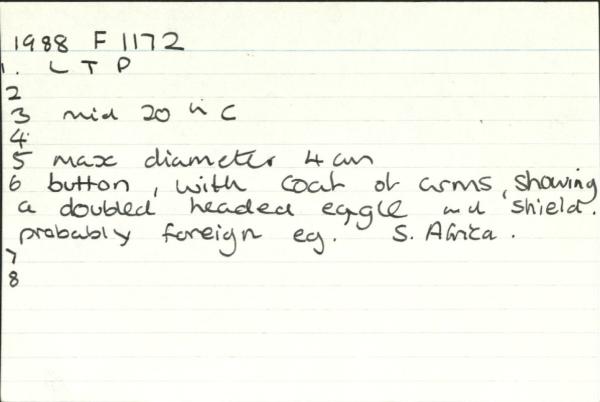 1988 F 1172
1. L T P
2
3 mid 20th C
4
5 max diameter 4cm
6 button, with coat of arms, showing
a doubled headed eagle and shield.
probably foreign eg. S. Africa.
7
8